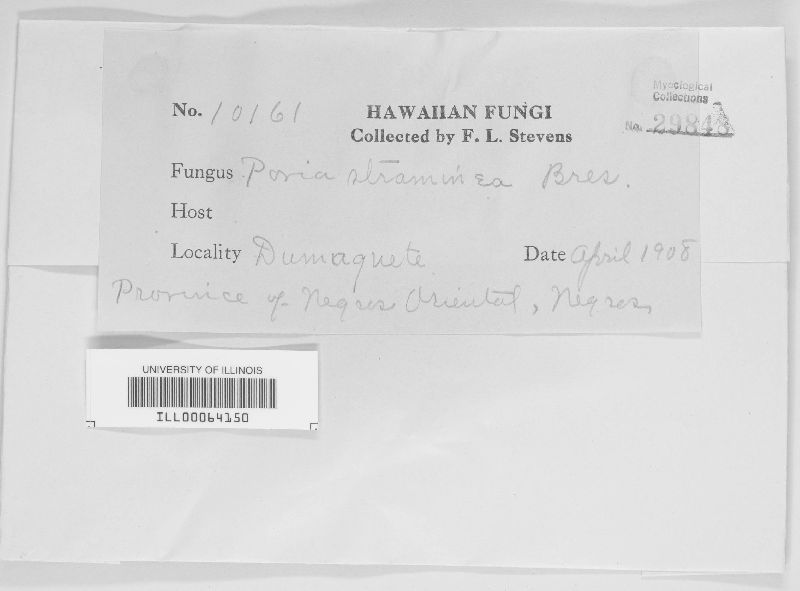 No. 10161
HAWAIIAN FUNGI
Collected by F. L. Stevens
Mycological
Collections
No. 29848
Fungus Poria straminea Bres.
Host
Locality Dumaguete
Date April 1908
Province of Negros Oriental, Negros,
UNIVERSITY OF ILLINOIS
ILL00064150